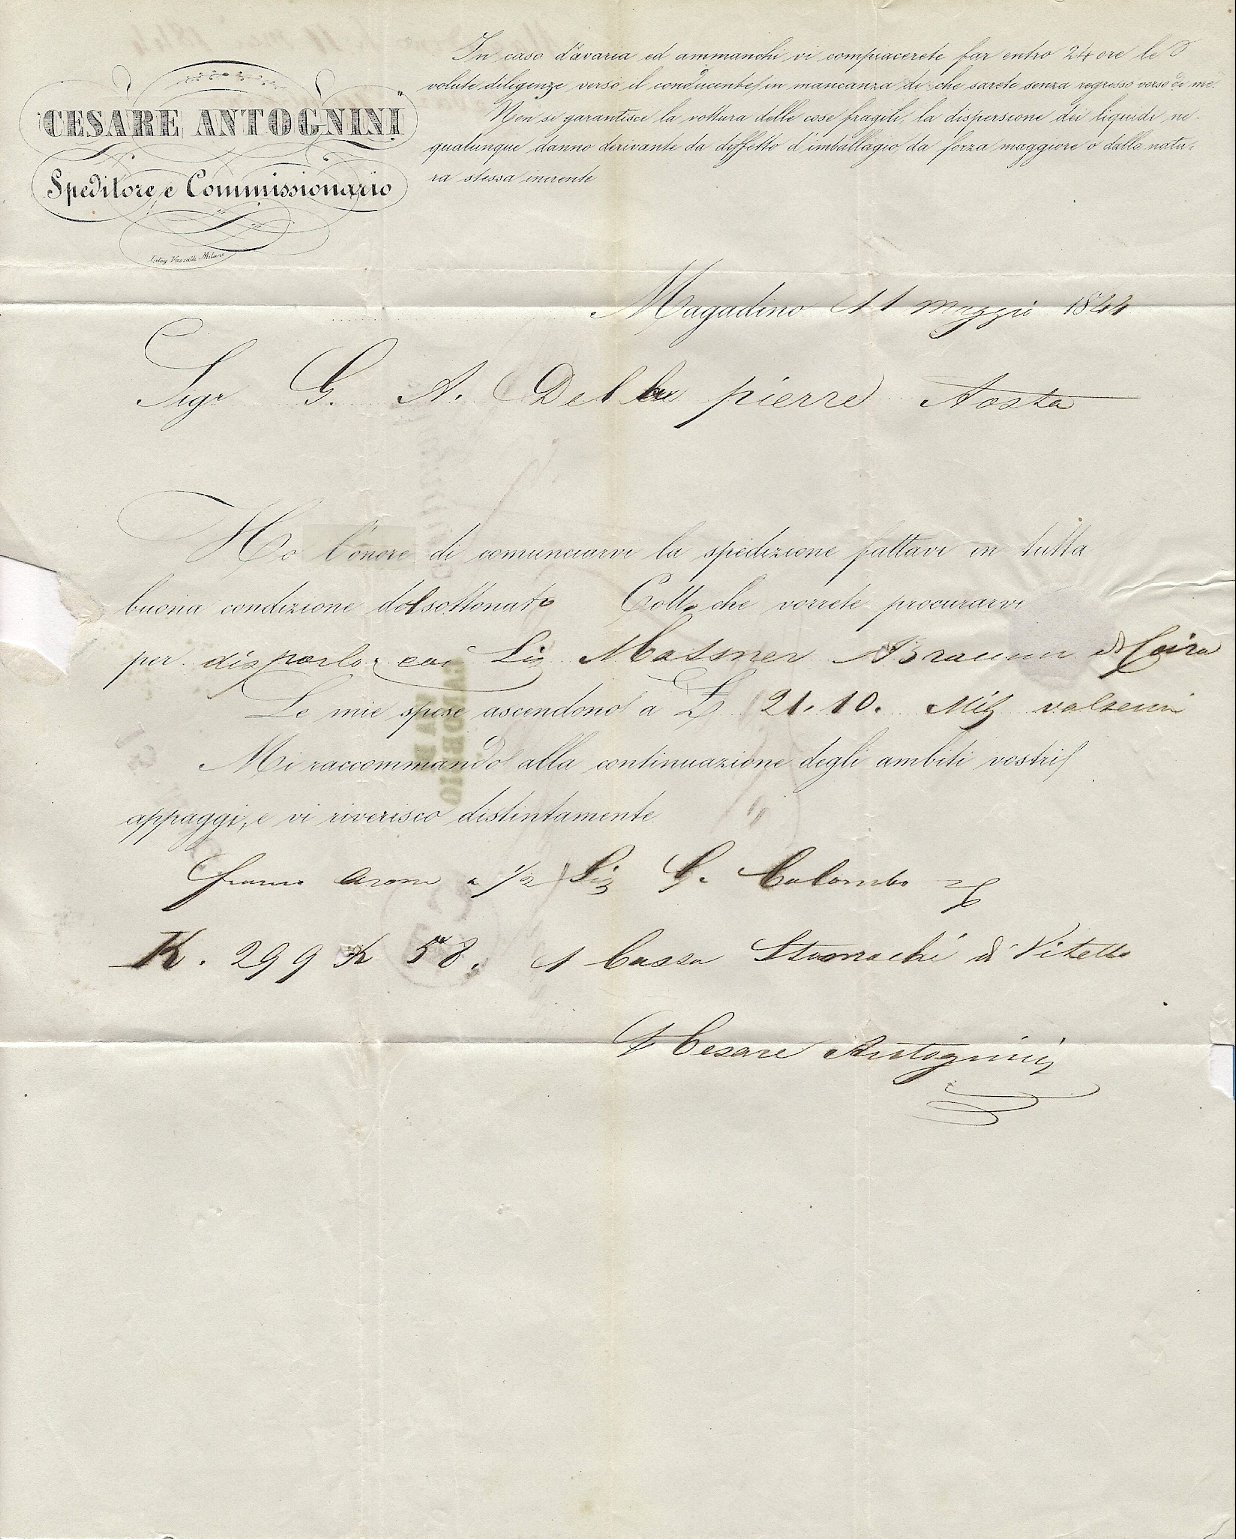 CESARE ANTOGNINI
Speditore e Commissionario
In caso d'avaria ed ammanchi vi compiacerete far entro 24 ore le d
volute diligenze verso il conducente, in mancanza di che sarete senza regresso verso di me.
Non si garantisce la rottura delle cose fragili, la dispersione dei liquidi ne
qualunque danno derivante da deffetto d'imballagio da forza maggiore o dalla natu-
ra stessa inerente
Magadino 11 maggio 1844
Sigr G. A. Della pierre Aosta
Ho l'onore di comunciarvi la spedizione fattavi in tutta
buona condizione del sottonato Collo che vorrete procurarvi
per disporlo Sig Massner di Coira
Le mie spese ascendono a L 21.10. Mil
Mi raccommando alla continuazione degli ambiti vostri
appraggi, e vi riverisco distintamente
franco Arona a 1/2 Sig G. Colombo
CANOBBIO
K. 299 K 58. 1 Cassa Stomachi di Vitello
Cesare Antognini